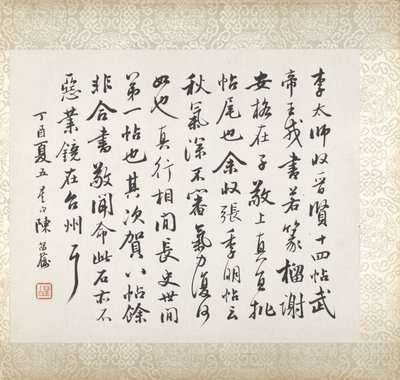 李太師收晉賢十四帖武
帝王戎書若篆籀謝
安格在子敬上真宜批
帖尾也余收張季明帖云
秋氣深不審氣力復何
如也真行相間長史世間
第一帖也其次賀八帖餘
非合書敬聞命此石亦不
惡業鏡在台州耳
丁酉夏五 陳